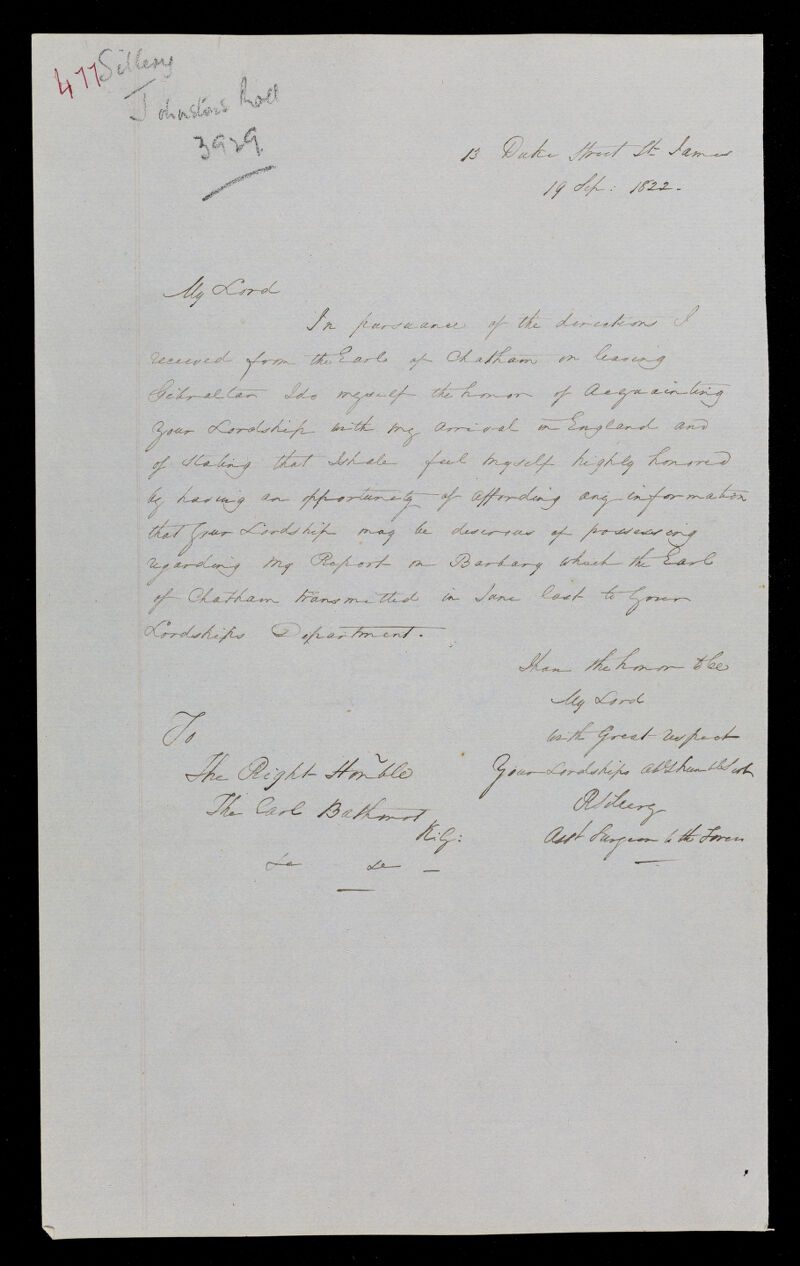 477 Sillery
Johnstons Roll
3929
13 Duke Street St. James
19 Sep: 1822.
My Lord
In pursuance of the directions I
received from the Earl of Chatham on leaving
Gibraltar I do myself the honor of Acquainting
Your Lordship with my arrival in England and
of stating that I shall feel myself highly honored
by having an opportunity of affording any information
that Your Lordship may be desirous of possessing
regarding my Report on Barbary which the Earl
of Chatham transmitted in June last to Your
Lordships Department.
I have the honor to be
My Lord
with Great respect
Your Lordships obt humble Servt
R Sillery
Asst Surgeon to the Forces
To
The Right Honble
The Earl Bathurst
K.G:
&c &c